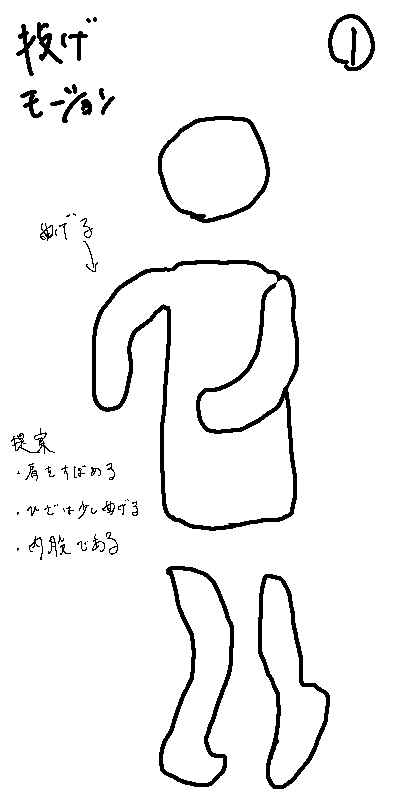 投げ
モーション
①
曲げる
提案
・肩をすぼめる
・ひざは少し曲げる
・内股である